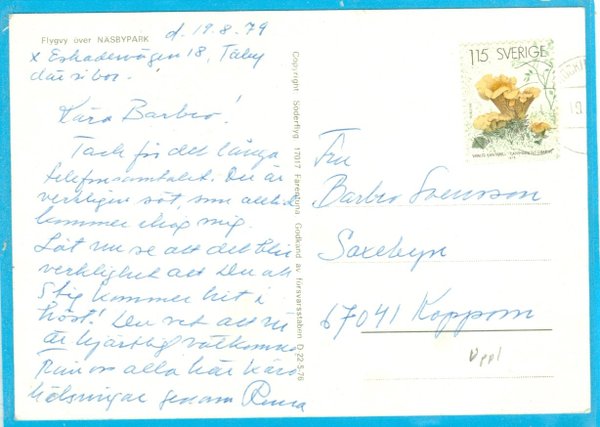 Flygvy över NÄSBYPARK
d. 19.8.79
x Eskadervägen 18, Täby
där vi bor.
Kära Barbro!
Tack för det långa
telefonsamtalet. Du är
verkligen söt, som alltid
kommer ihåg mig.
Låt nu se att det blir
verklighet att Du och
Stig kommer hit i
höst! Du vet att ni
är hjärtligt välkomna
Från oss alla här kära
hälsningar genom
Copyright Söderflyg 17017 Färentuna Godkänd av försvarsstaben D-22-5-76
115 SVERIGE
Fru
Barbro Svensson
Saxebyn
67041 Koppom
Uppl